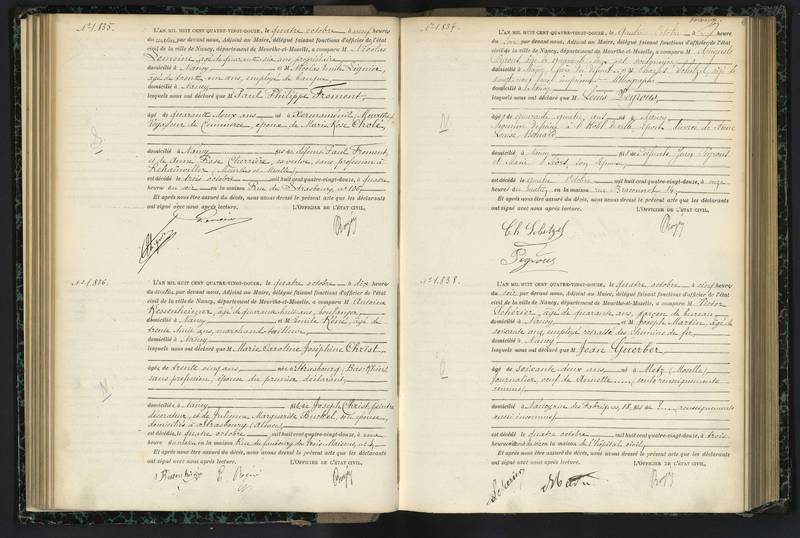 N° 1,835.
L'AN MIL HUIT CENT QUATRE-VINGT-DOUZE, le quatre octobre à neuf heures
du matin, par devant nous, Adjoint au Maire, délégué faisant fonctions d'officier de l'état
civil de la ville de Nancy, département de Meurthe-et-Moselle, a comparu M. Nicolas
Lemoine, âgé de quarante six ans, propriétaire
domicilié à Nancy et M. Nicolas Emile
âgé de trente un ans, employé de banque,
domicilié à Nancy
lesquels nous ont déclaré que M. Paul Philippe Froment,
âgé de quarante deux ans né à Xermaménil, Meurthe
Voyageur de Commerce, époux de Marie Rose Cholé
domicilié à Nancy fils de défunt Paul Froment,
et de Anne Rose Cherrière, sa veuve, sans profession à
Rehainviller (Meurthe et Moselle)
est décédé le trois octobre mil huit cent quatre-vingt-douze, à quatre
heures du soir en la maison Rue de Strasbourg, n° 106
Et après nous être assuré du décès, nous avons dressé le présent acte que les déclarants
ont signé avec nous après lecture. L'OFFICIER DE L'ÉTAT CIVIL,
N° 1,836.
L'AN MIL HUIT CENT QUATRE-VINGT-DOUZE, le quatre octobre à dix heures
du matin, par devant nous, Adjoint au Maire, délégué faisant fonctions d'officier de l'état
civil de la ville de Nancy, département de Meurthe-et-Moselle, a comparu M. Antoine
Rossenheimer, âgé de quarante huit ans, boulanger
domicilié à Nancy et M. Emile René, âgé de
trente huit ans, marchand tailleur
domicilié à Nancy
lesquels nous ont déclaré que M. Marie Caroline Joséphine Christ
âgé de trente cinq ans né à Strasbourg (Bas-Rhin)
sans profession, épouse du premier déclarant,
domicilié à Nancy fille de Joseph Christ, peintre
décorateur, et de Julienne Marguerite Buckel, son épouse,
domiciliés à Strasbourg (Alsace)
est décédée le quatre octobre mil huit cent quatre-vingt-douze, à une
heure du matin en la maison Rue du faubourg des trois Maisons, n° 4
Et après nous être assuré du décès, nous avons dressé le présent acte que les déclarants
ont signé avec nous après lecture. L'OFFICIER DE L'ÉTAT CIVIL,
E. René
N° 1,837.
L'AN MIL HUIT CENT QUATRE-VINGT-DOUZE, le quatre octobre à heures
du soir, par devant nous, Adjoint au Maire, délégué faisant fonctions d'officier de l'état
civil de la ville de Nancy, département de Meurthe-et-Moselle, a comparu M. Auguste
domicilié à Nancy, frère du défunt et M. Charles Schetzel, âgé de
vingt neuf ans, lithographe
domicilié à Nancy
lesquels nous ont déclaré que M. Louis Peyrous
âgé de quarante quatre ans né à Nancy
domicilié à Nancy fils de
et Marie son épouse
est décédé le quatre octobre mil huit cent quatre-vingt-douze, à onze
heures du matin en la maison rue Braconnot 14
Et après nous être assuré du décès, nous avons dressé le présent acte que les déclarants
ont signé avec nous après lecture. L'OFFICIER DE L'ÉTAT CIVIL,
Ch. Schetzel
Peyrous
N° 1,838.
L'AN MIL HUIT CENT QUATRE-VINGT-DOUZE, le quatre octobre à cinq heures
du soir, par devant nous, Adjoint au Maire, délégué faisant fonctions d'officier de l'état
civil de la ville de Nancy, département de Meurthe-et-Moselle, a comparu M. Victor
Scherier, âgé de quarante ans, garçon de bureau
domicilié à Nancy et M. Joseph Martin, âgé de
soixante ans, employé retraité des chemins de fer,
domicilié à Nancy
lesquels nous ont déclaré que M. Jean Guerber,
âgé de soixante deux ans né à Metz (Moselle)
Journalier, veuf de Annette (seuls renseignements
connus)
domicilié à Nancy, rue des Fabriques, 18, fils de ? (renseignements
aussi inconnus)
est décédé le quatre octobre mil huit cent quatre-vingt-douze, à trois
heures du matin en la maison de l'hôpital civil
Et après nous être assuré du décès, nous avons dressé le présent acte que les déclarants
ont signé avec nous après lecture. L'OFFICIER DE L'ÉTAT CIVIL,
Scherier